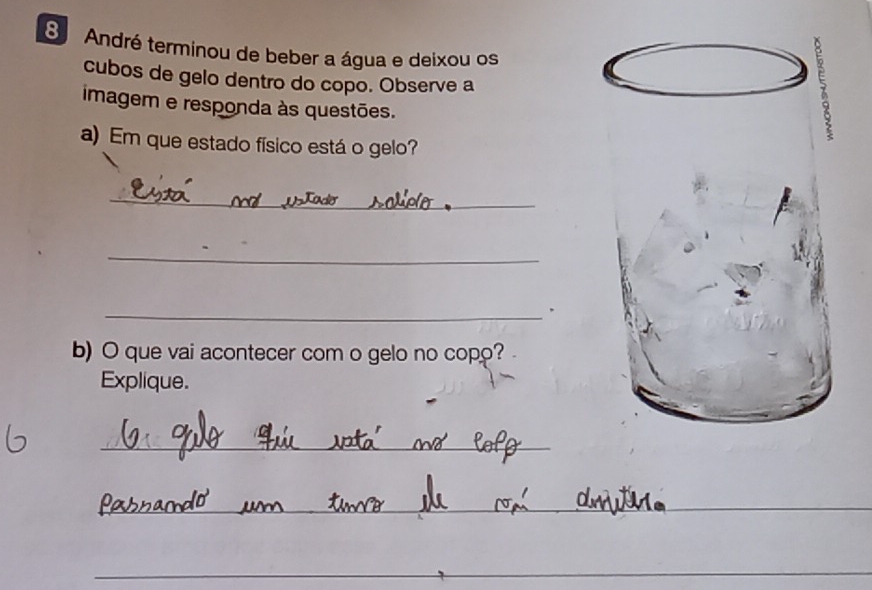 8 André terminou de beber a água e deixou os
cubos de gelo dentro do copo. Observe a
imagem e responda às questões.
a) Em que estado físico está o gelo?
está no estado solido.
b) O que vai acontecer com o gelo no copo?
Explique.
gelo que está no copo
passando um ele
WINNOND/SHUTTERSTOCK